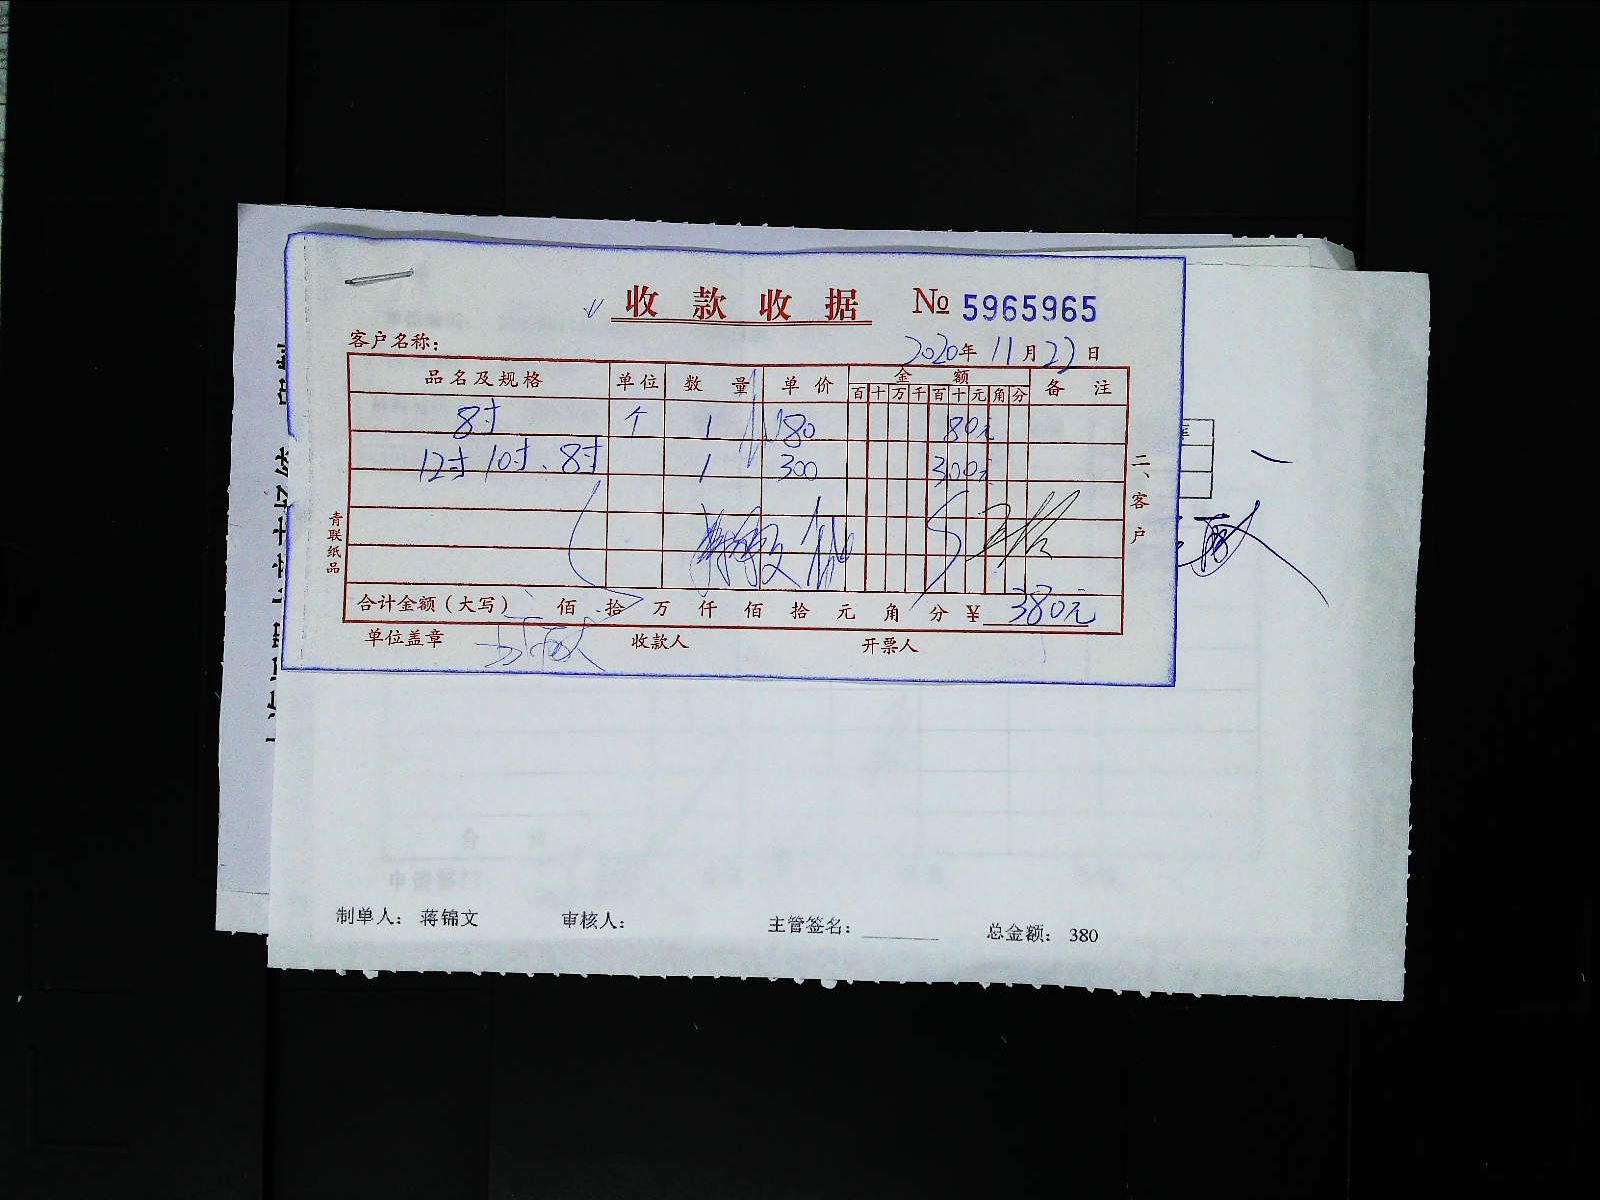 收款收据 № 5965965
客户名称: 2020年11月22日
品名及规格 单位 数量 单价 金额 备注
百十万千百十元角分
8寸 个 1 80 80元
12寸 10寸、8寸 1 300 300元
二、客户
青联纸品
合计金额(大写) 佰 拾 万 仟 佰 拾 元 角 分 ¥ 380元
单位盖章 收款人 开票人
制单人: 蒋锦文 审核人: 主管签名: 总金额: 380